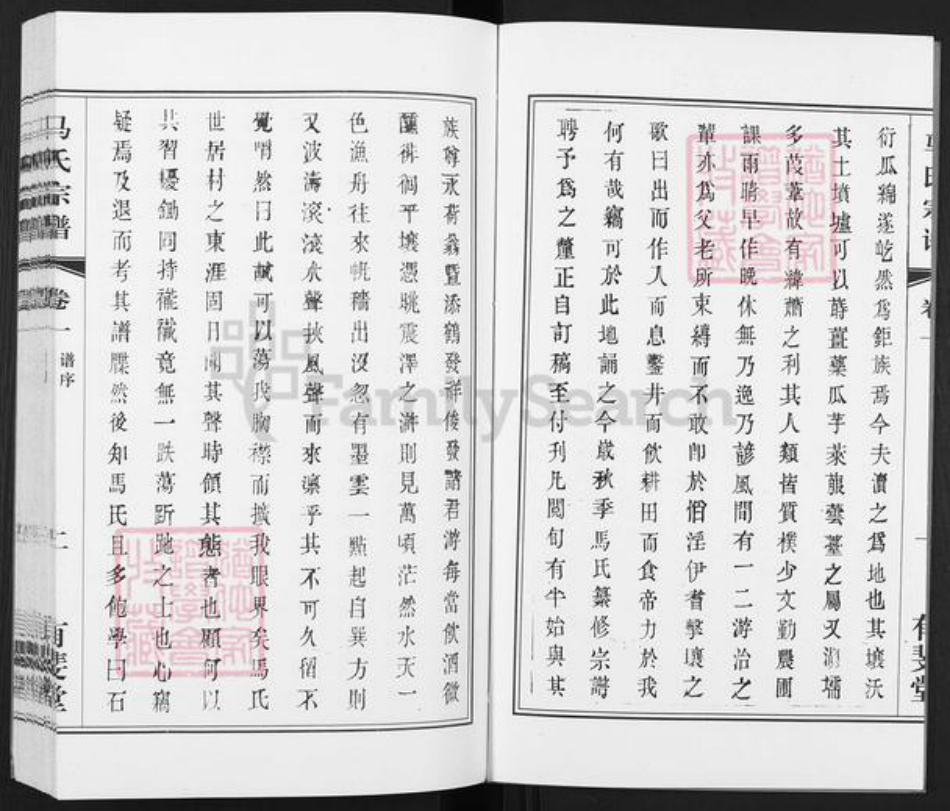 衍瓜綿遂屹然爲鉅族焉今夫瀆之爲地也其壤沃
其土墳墟可以蒔薑藥瓜芋菜蔬蕓薹之屬又瀕
多葭葦故有緯蕭之利其人類皆質樸少文勤農圃
課雨晴早作晚休無乃逸乃諺風間有一二游冶之
輩亦爲父老所束縛而不敢卽於慆淫伊耆擊壤之
歌曰出而作入而息鑿井而飲耕田而食帝力於我
何有哉竊可於此地誦之今歲秋季馬氏纂修宗譜
聘予爲之釐正自訂稿至付刊凡閲旬有半始與其
族尊永荷翁暨添鶴發祥俊發諸君游每當飲酒微
醺徘徊平壤憑眺震澤之滸則見萬頃茫然水天一
色漁舟往來帆檣出沒忽有墨雲一點起自巽方則
又波濤滾滾水聲挾風聲而來凛乎其不可久留不
覺哨然曰此誠可以蕩我胸襟而擴我眼界矣馬氏
世居村之東涯固日聞其聲時領其態者也顧何以
共習耰鋤同持襏襫竟無一跌蕩跅跎之士也心竊
疑焉及退而考其譜牒然後知馬氏且多飽學曰石
马氏宗谱
卷一
谱序
二
有斐堂